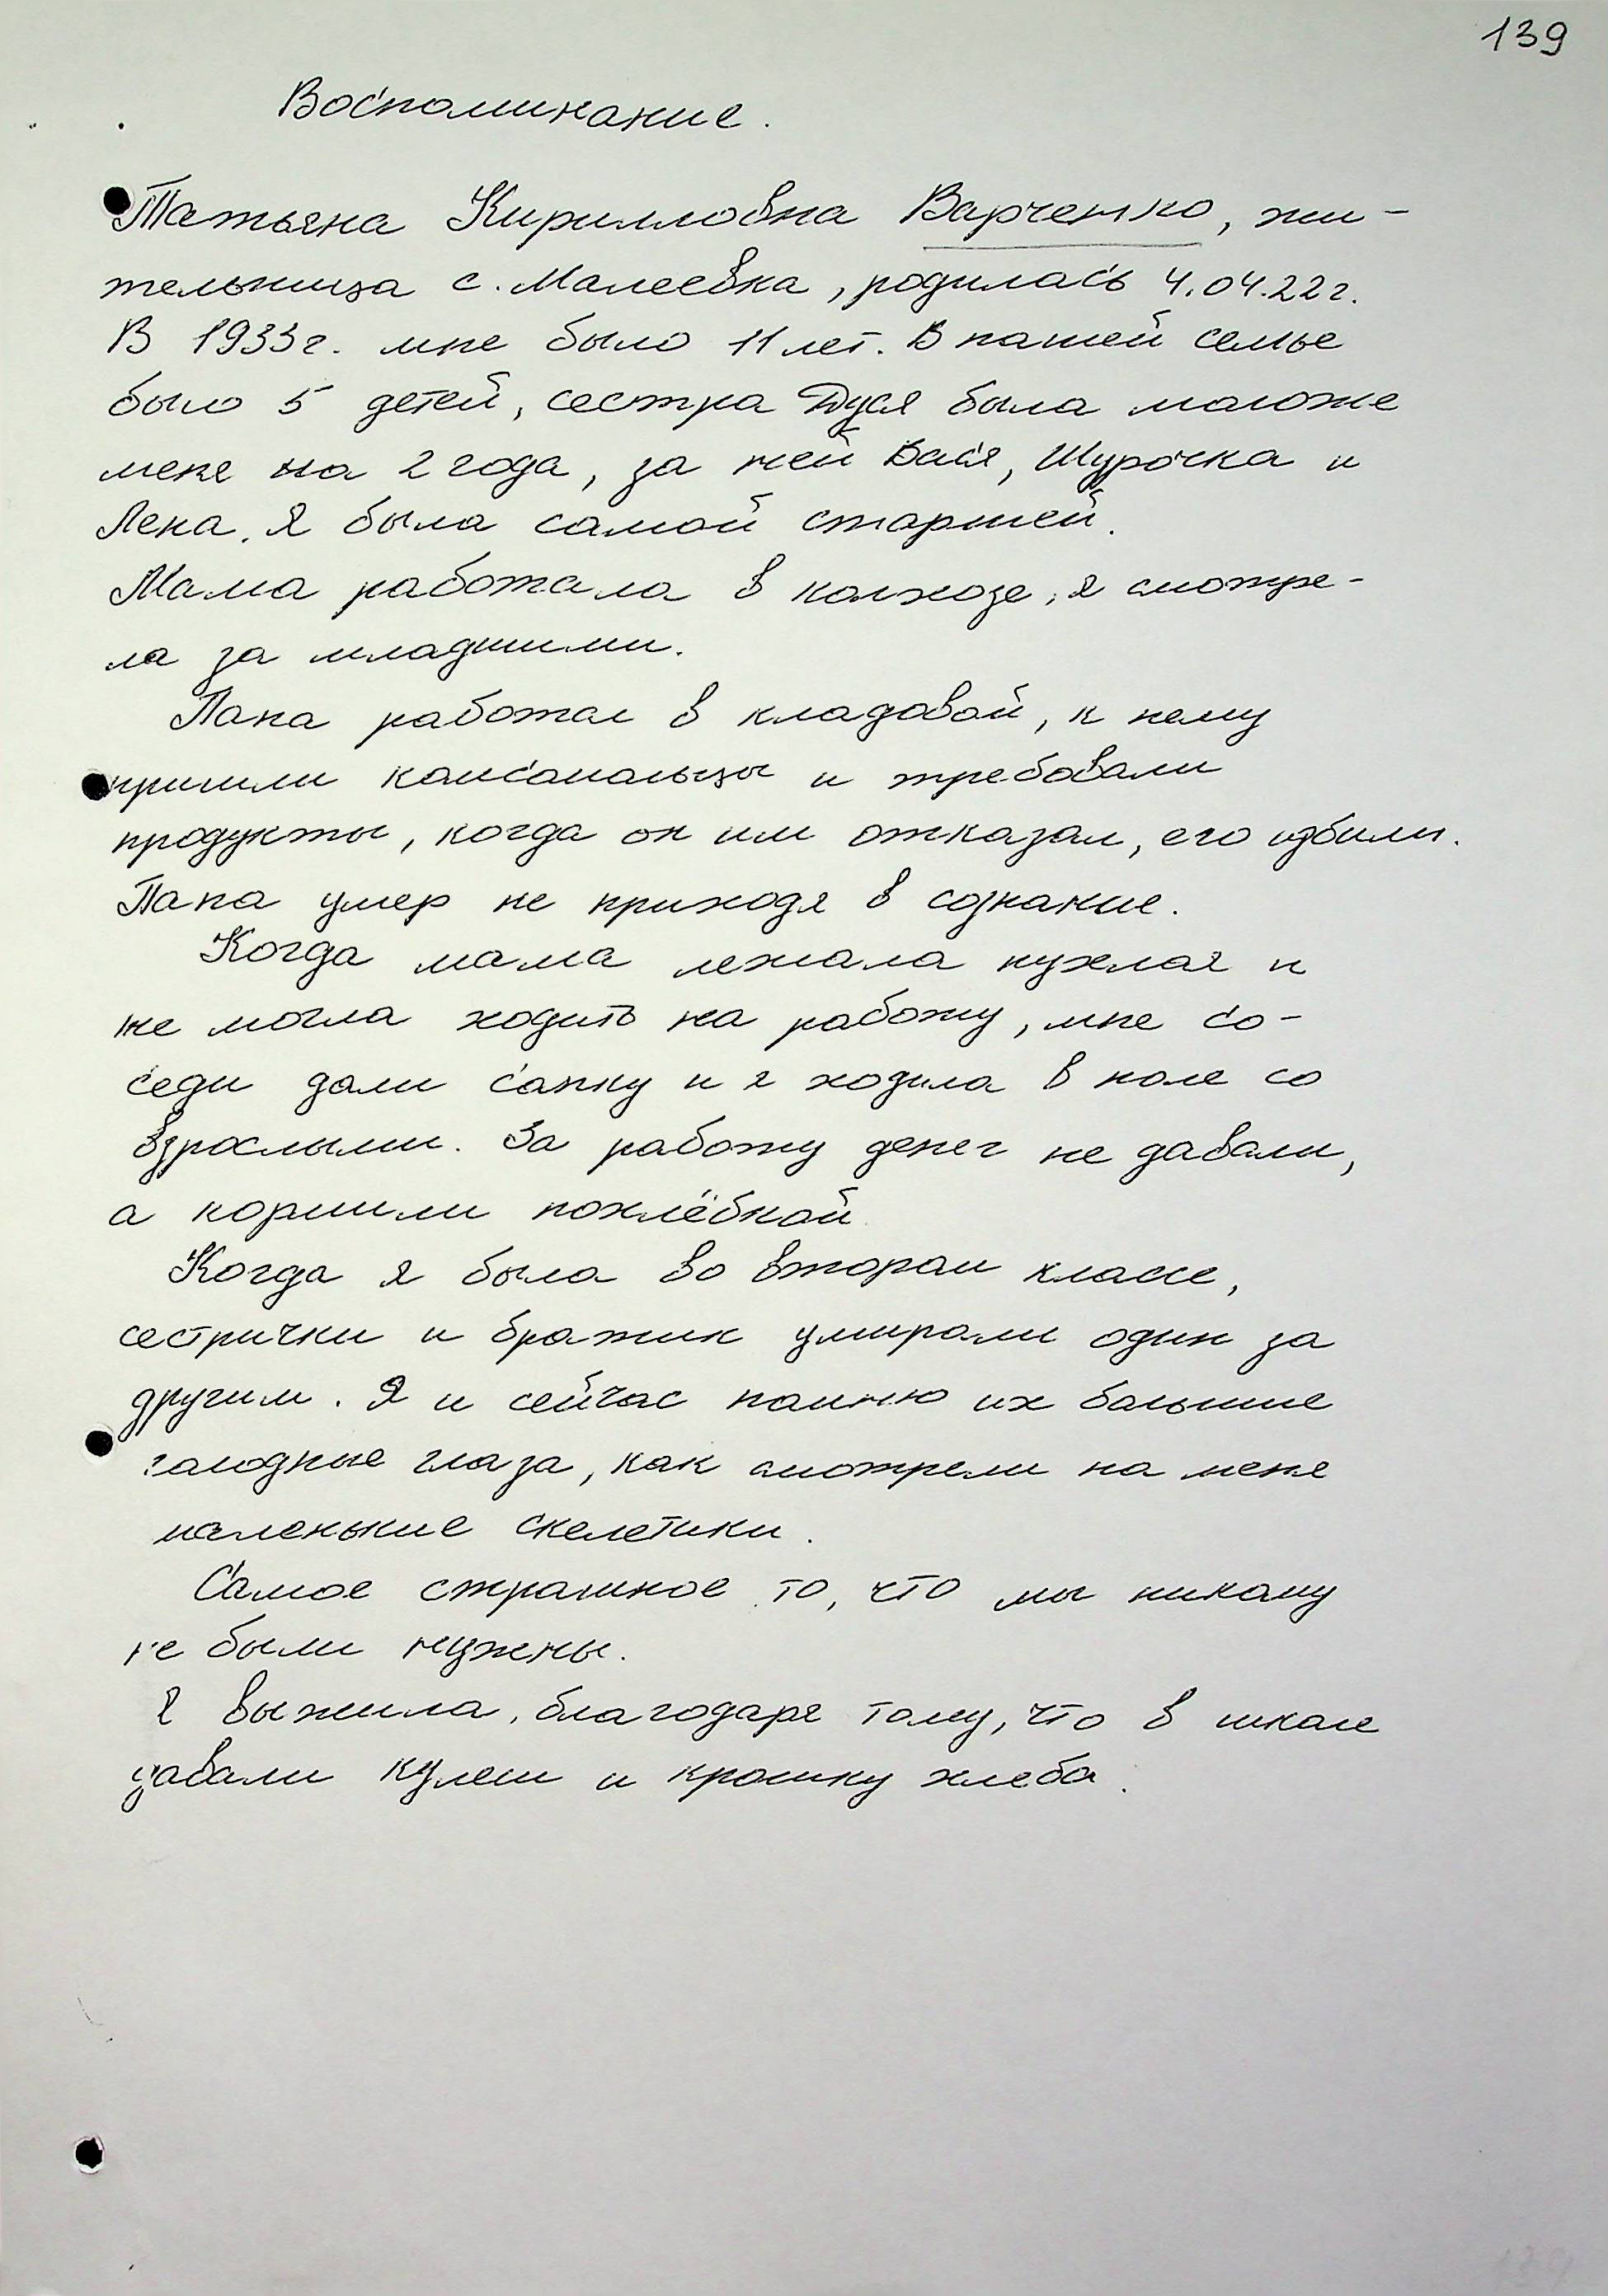 139
Воспоминание.
Татьяна Кирилловна Варченко, жи-
тельница с. Малеевка, родилась 4.04.22г.
В 1933г. мне было 11 лет. В нашей семье
было 5 детей, сестра Дуся была моложе
меня на 2 года, за ней Вася, Шурочка и
Лена. Я была самой старшей.
Мама работала в колхозе, я смотре-
ла за младшими.
Папа работал в кладовой, к нему
пришли комсомольцы и требовали
продукты, когда он им отказал, его избили.
Папа умер не приходя в сознание.
Когда мама лежала пухлая и
не могла ходить на работу, мне со-
седи дали сапку и я ходила в поле со
взрослыми. За работу денег не давали,
а кормили похлёбкой.
Когда я была во втором классе,
сестрички и братик умирали один за
другим. Я и сейчас помню их большие
голодные глаза, как смотрели на меня
маленькие скелетики.
Самое страшное то, что мы никому
не были нужны.
Я выжила, благодаря тому, что в школе
давали кулеш и крошку хлеба.